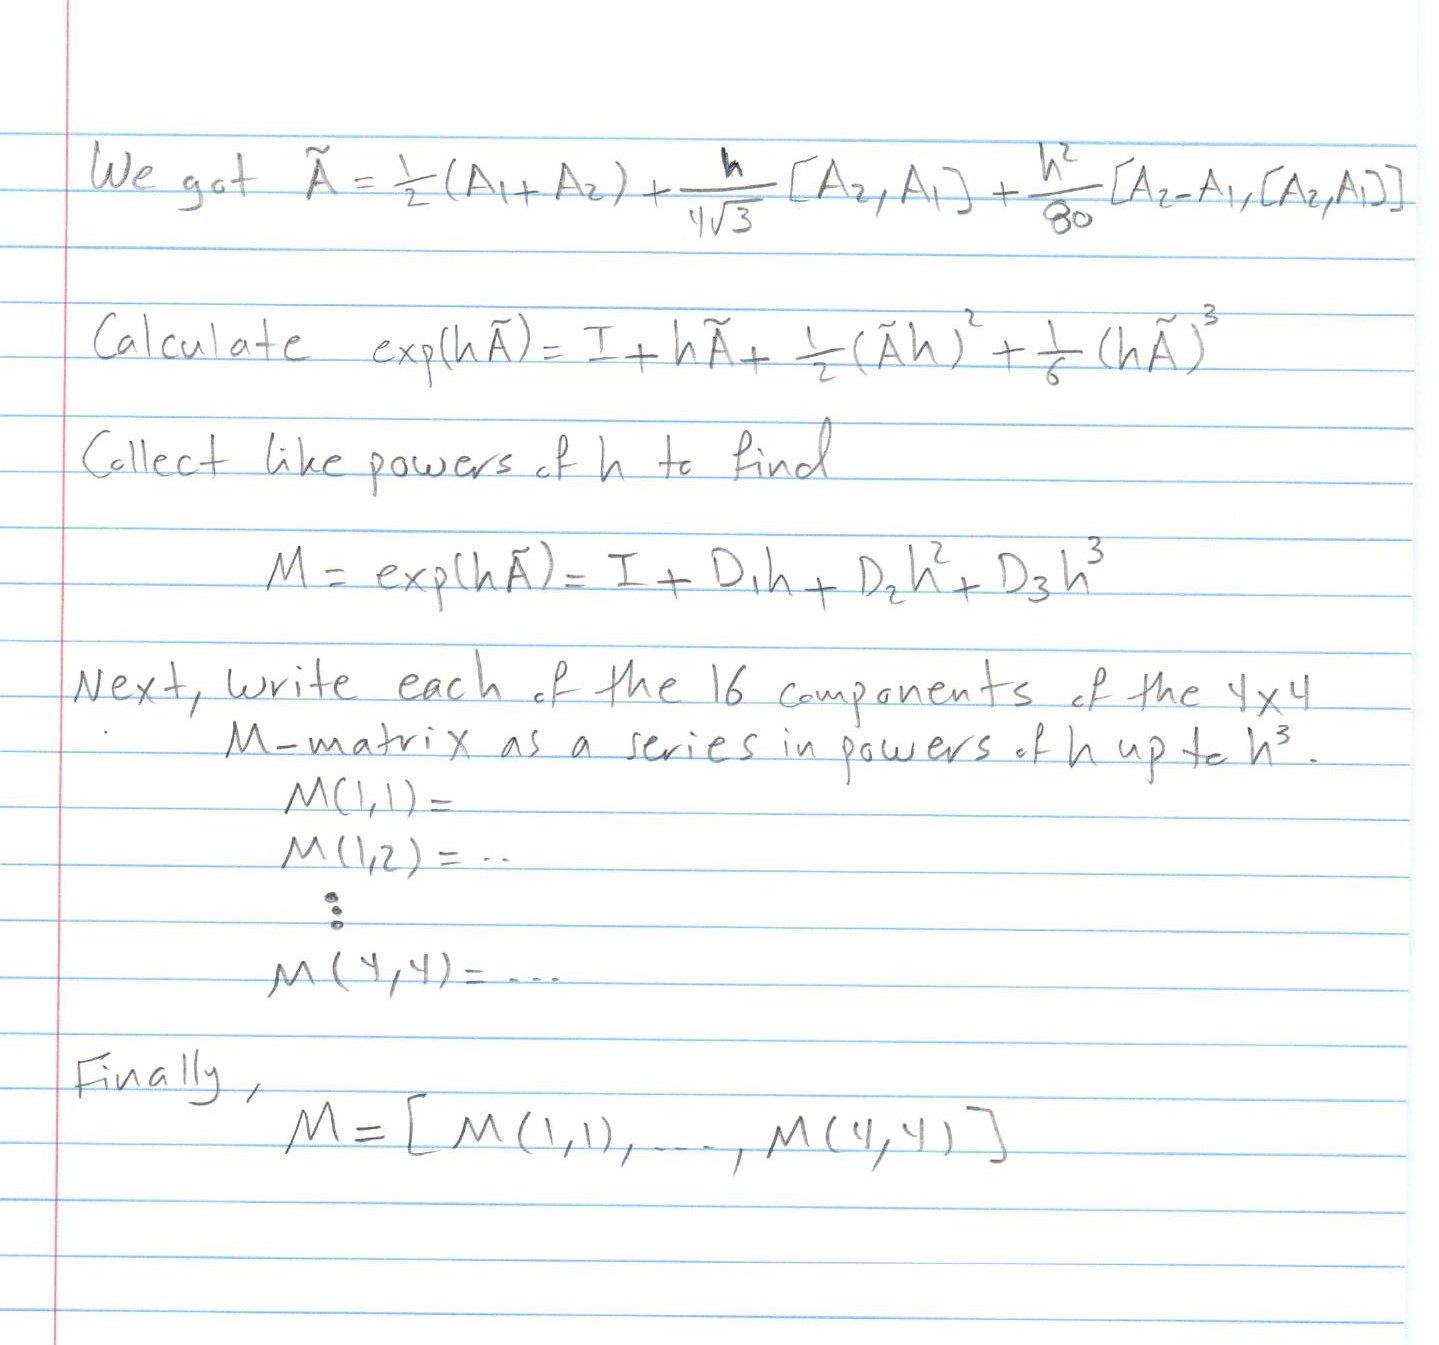 We got Ã = 1/2 (A₁ + A₂) + h/4√3 [A₂, A₁] + h²/80 [A₂-A₁, [A₂,A₁]]
Calculate exp(hÃ) = I + hÃ + 1/2 (Ãh)² + 1/6 (hÃ)³
Collect like powers of h to find
M = exp(hÃ) = I + D₁h + D₂h² + D₃h³
Next, write each of the 16 components of the 4x4
M-matrix as a series in powers of h up to h³.
M(1,1) =
M(1,2) = ..
⋮
M(4,4) = ....
Finally,
M = [ M(1,1), ...., M(4,4) ]